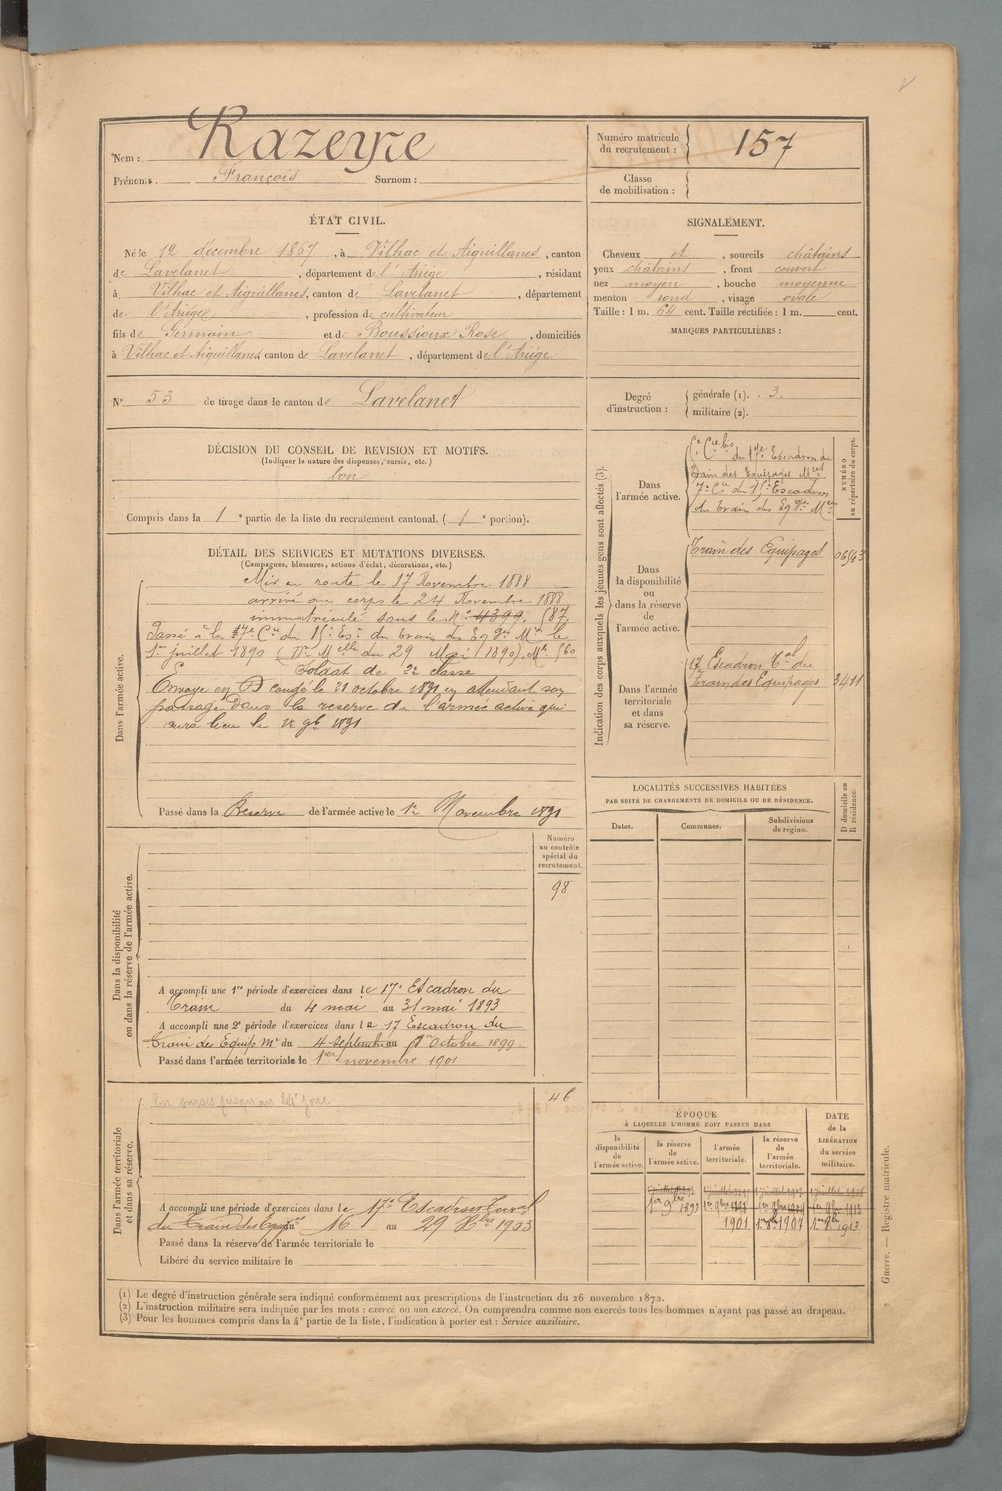 Nom : Razeyre
Prénoms. François Surnom :
Numéro matricule du recrutement : 157
Classe de mobilisation :
ÉTAT CIVIL.
Né le 12 décembre 1867, à Vilhac et Aiguillanes, canton
de Lavelanet, département de l'Ariège, résidant
à Vilhac et Aiguillanes, canton de Lavelanet, département
de l'Ariège, profession de cultivateur
fils de Germain et de Boussioux Rose, domiciliés
à Vilhac et Aiguillanes canton de Lavelanet, département de l'Ariège
SIGNALEMENT.
Cheveux et, sourcils châtains
yeux châtains, front couvert
nez moyen, bouche moyenne
menton rond, visage ovale
Taille : 1 m. 64 cent. Taille rectifiée : 1 m. cent.
MARQUES PARTICULIÈRES :
N° 53 de tirage dans le canton de Lavelanet
Degré d'instruction : générale (1). 3.
militaire (2).
DÉCISION DU CONSEIL DE REVISION ET MOTIFS.
(Indiquer la nature des dispenses, sursis, etc.)
bon
Compris dans la 1e partie de la liste du recrutement cantonal. (1e portion).
DÉTAIL DES SERVICES ET MUTATIONS DIVERSES.
(Campagnes, blessures, actions d'éclat, décorations, etc.)
Dans l'armée active.
Mis en route le 17 Novembre 1888
arrivé au corps le 24 Novembre 1888
immatriculé sous le N° 4399. 587
Passé à la 17e Cie du 15e Esc. du train des Eq ges Mres le
1er juillet 1890 (Dn Mlle du 29 Mai 1890). Mle 560
Soldat de 2e classe
Envoyé en congé le 21 octobre 1891 en attendant son
passage dans la réserve de l'armée active qui
aura lieu le 1er 9bre 1891
Passé dans la Réserve de l'armée active le 1er Novembre 1891
Indication des corps auxquels les jeunes gens sont affectés (3).
NUMÉRO au répertoire du corps.
Dans l'armée active.
du 17e Escadron du
Train des Equipages Mres
7e Cie du 15e Escadron
du train des Eq ges Mres
Dans la disponibilité ou dans la réserve de l'armée active.
Train des Equipages
06543
Dans l'armée territoriale et dans sa réserve.
17 Escadron Tal du
Train des Equipages
3411
LOCALITÉS SUCCESSIVES HABITÉES
PAR SUITE DE CHANGEMENTS DE DOMICILE OU DE RÉSIDENCE.
D domicile ou R résidence.
Dates. Communes. Subdivisions de région.
Dans la disponibilité ou dans la réserve de l'armée active.
Numéro au contrôle spécial du recrutement.
98
A accompli une 1re période d'exercices dans le 17e Escadron du
Train du 4 mai au 31 mai 1893
A accompli une 2e période d'exercices dans le 17 Escadron du
Train des Equip Mres du 4 septembre au 1er Octobre 1899.
Passé dans l'armée territoriale le 1er novembre 1901
Dans l'armée territoriale et dans sa réserve.
46
A accompli une période d'exercices dans le 17e Escadron Terral
du Train des Equipages du 16 au 29 Xbre 1903
Passé dans la réserve de l'armée territoriale le
Libéré du service militaire le
ÉPOQUE
À LAQUELLE L'HOMME DOIT PASSER DANS
DATE de la LIBÉRATION du service militaire.
la disponibilité de l'armée active. la réserve de l'armée active. l'armée territoriale. la réserve de l'armée territoriale.
1er 9bre 1891
1901 1er 8bre 1907 1er 8bre 1913
(1) Le degré d'instruction générale sera indiqué conformément aux prescriptions de l'instruction du 26 novembre 1872.
(2) L'instruction militaire sera indiquée par les mots : exercé ou non exercé. On comprendra comme non exercés tous les hommes n'ayant pas passé au drapeau.
(3) Pour les hommes compris dans la 4e partie de la liste, l'indication à porter est : Service auxiliaire.
Guerre. — Registre matricule.